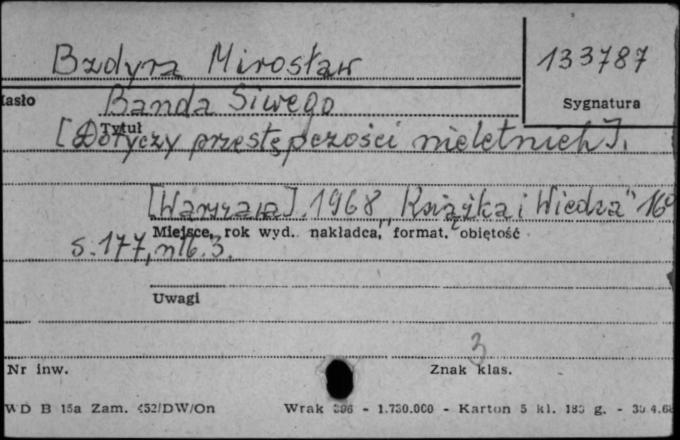 Bzdyra Mirosław
133787
Hasło
Sygnatura
Banda Siwego
Tytuł
[Dotyczy przestępczości nieletnich].
[Warszawa]. 1968 „Książka i Wiedza" 16°
Miejsce, rok wyd. nakładca, format, objętość
s. 177, nlb. 3.
Uwagi
3
Nr inw.
Znak klas.
WD B 15a Zam. 452/DW/On Wrak 396 - 1.730.000 - Karton 5 kl. 180 g. -